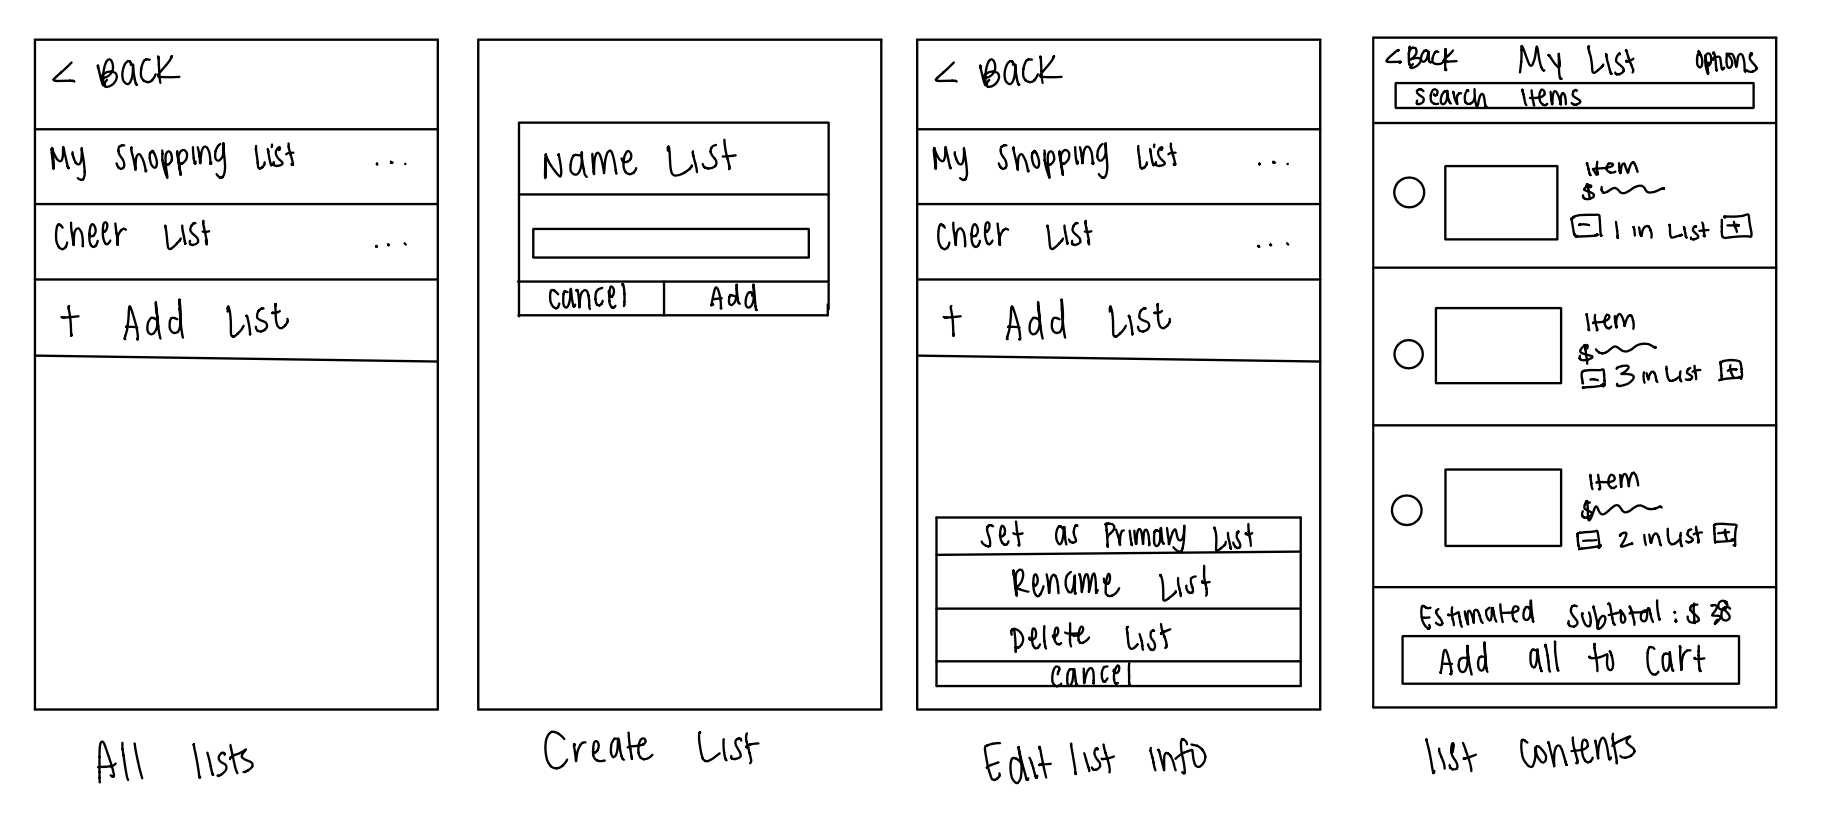 < Back
My Shopping List ...
Cheer List ...
+ Add List
All lists
Name List
cancel Add
Create List
< Back
My Shopping List ...
Cheer List ...
+ Add List
Set as Primary List
Rename List
Delete List
cancel
Edit list info
< Back My List Options
Search Items
Item
$
- 1 in List +
Item
$
- 3 in List +
Item
$
- 2 in List +
Estimated Subtotal: $ 38
Add all to Cart
list contents